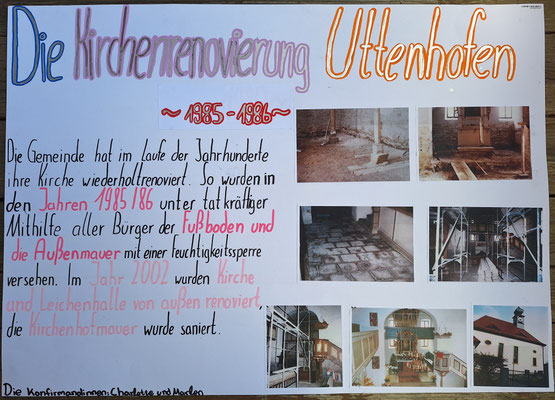 Die Kirchenrenovierung Uttenhofen
~1985-1986~
Die Gemeinde hat im Laufe der Jahrhunderte
ihre Kirche wiederholt renoviert. So wurden in
den Jahren 1985/86 unter tatkräftiger
Mithilfe aller Bürger der Fußboden und
die Außenmauer mit einer Feuchtigkeitssperre
versehen. Im Jahr 2002 wurden Kirche
und Leichenhalle von außen renoviert,
die Kirchenhofmauer wurde saniert.
Die Konfirmandinnen: Charlotte und Marlen